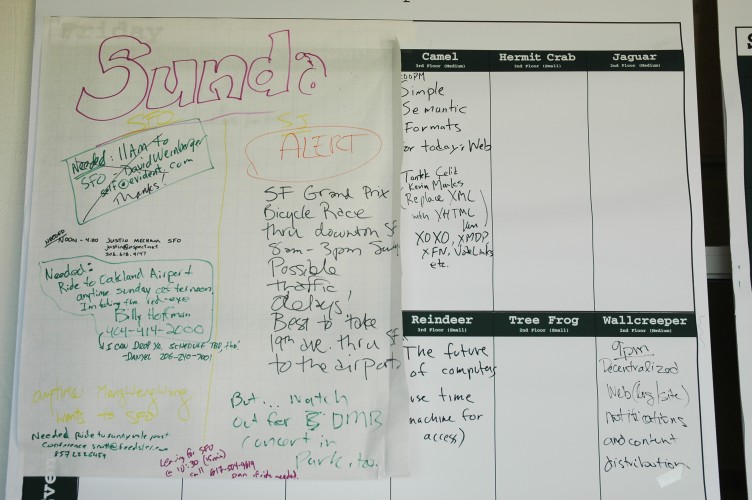 Friday
Sunda
SFO
SJ
Needed: 11AM to
SFO - David Weinberger
self@evident.com
Thanks.
NEEDED
NOON - 4:00 JUSTIN MECHAM SFO
Needed:
Ride to Oakland Airport
anytime Sunday afternoon.
I'm taking the red-eye
Billy Hoffman
404-414-2000
I CAN DROP YA. SCHEDULE TBD, tho'
-DANYEL 206-240-7001
ALERT
SF Grand Prix
Bicycle Race
thru downton SF
8am - 3pm Sunday
Possible
traffic
delays!
Best to take
19th ave. thru SF
to the airport
But... watch
out for DMB
concert in
Park, too.
anytime
wants to SFO
Needed Ride to sunnyvale post
Conference
Leaving for SFO
@ 10:30
call 617-504-9819
if ride needed.
Camel
3rd Floor (Medium)
Hermit Crab
3rd Floor (Small)
Jaguar
2nd Floor (Medium)
Simple
Semantic
Formats
or today's Web
Tantek Çelik
Kevin Marks
(Replace XML
with XHTML
XOXO, XMDP
XFN, VoteLinks
etc.
Reindeer
3rd Floor (Small)
Tree Frog
2nd Floor (Small)
Wallcreeper
2nd Floor (Medium)
The future
of computers
use time
machine for
access)
9pm
Decentralized
Web (org/site)
notifications
and content
distribution